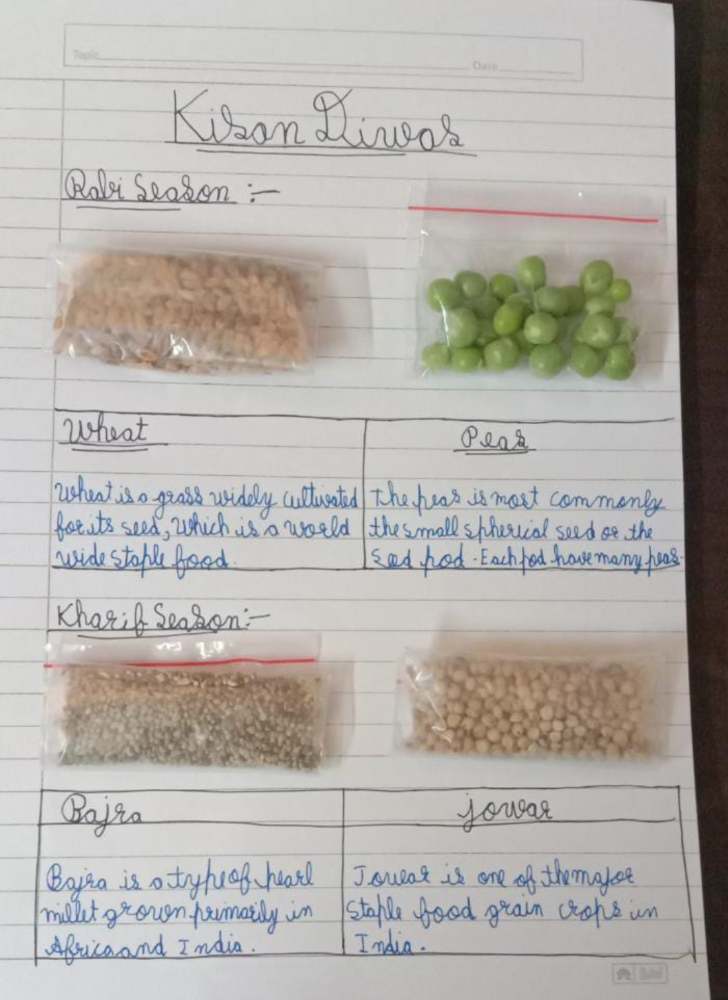 Topic
Date
Kisan Diwas
Rabi Season :-
Wheat
Wheat is a grass widely cultivated
for its seed, which is a world
wide staple food.
Peas
The peas is most commonly
the small spherical seed or the
seed pod. Each pod have many peas.
Kharif Season:-
Bajra
Bajra is a type of pearl
millet grown primarily in
Africa and India.
jowar
Jowar is one of the major
staple food grain crops in
India.